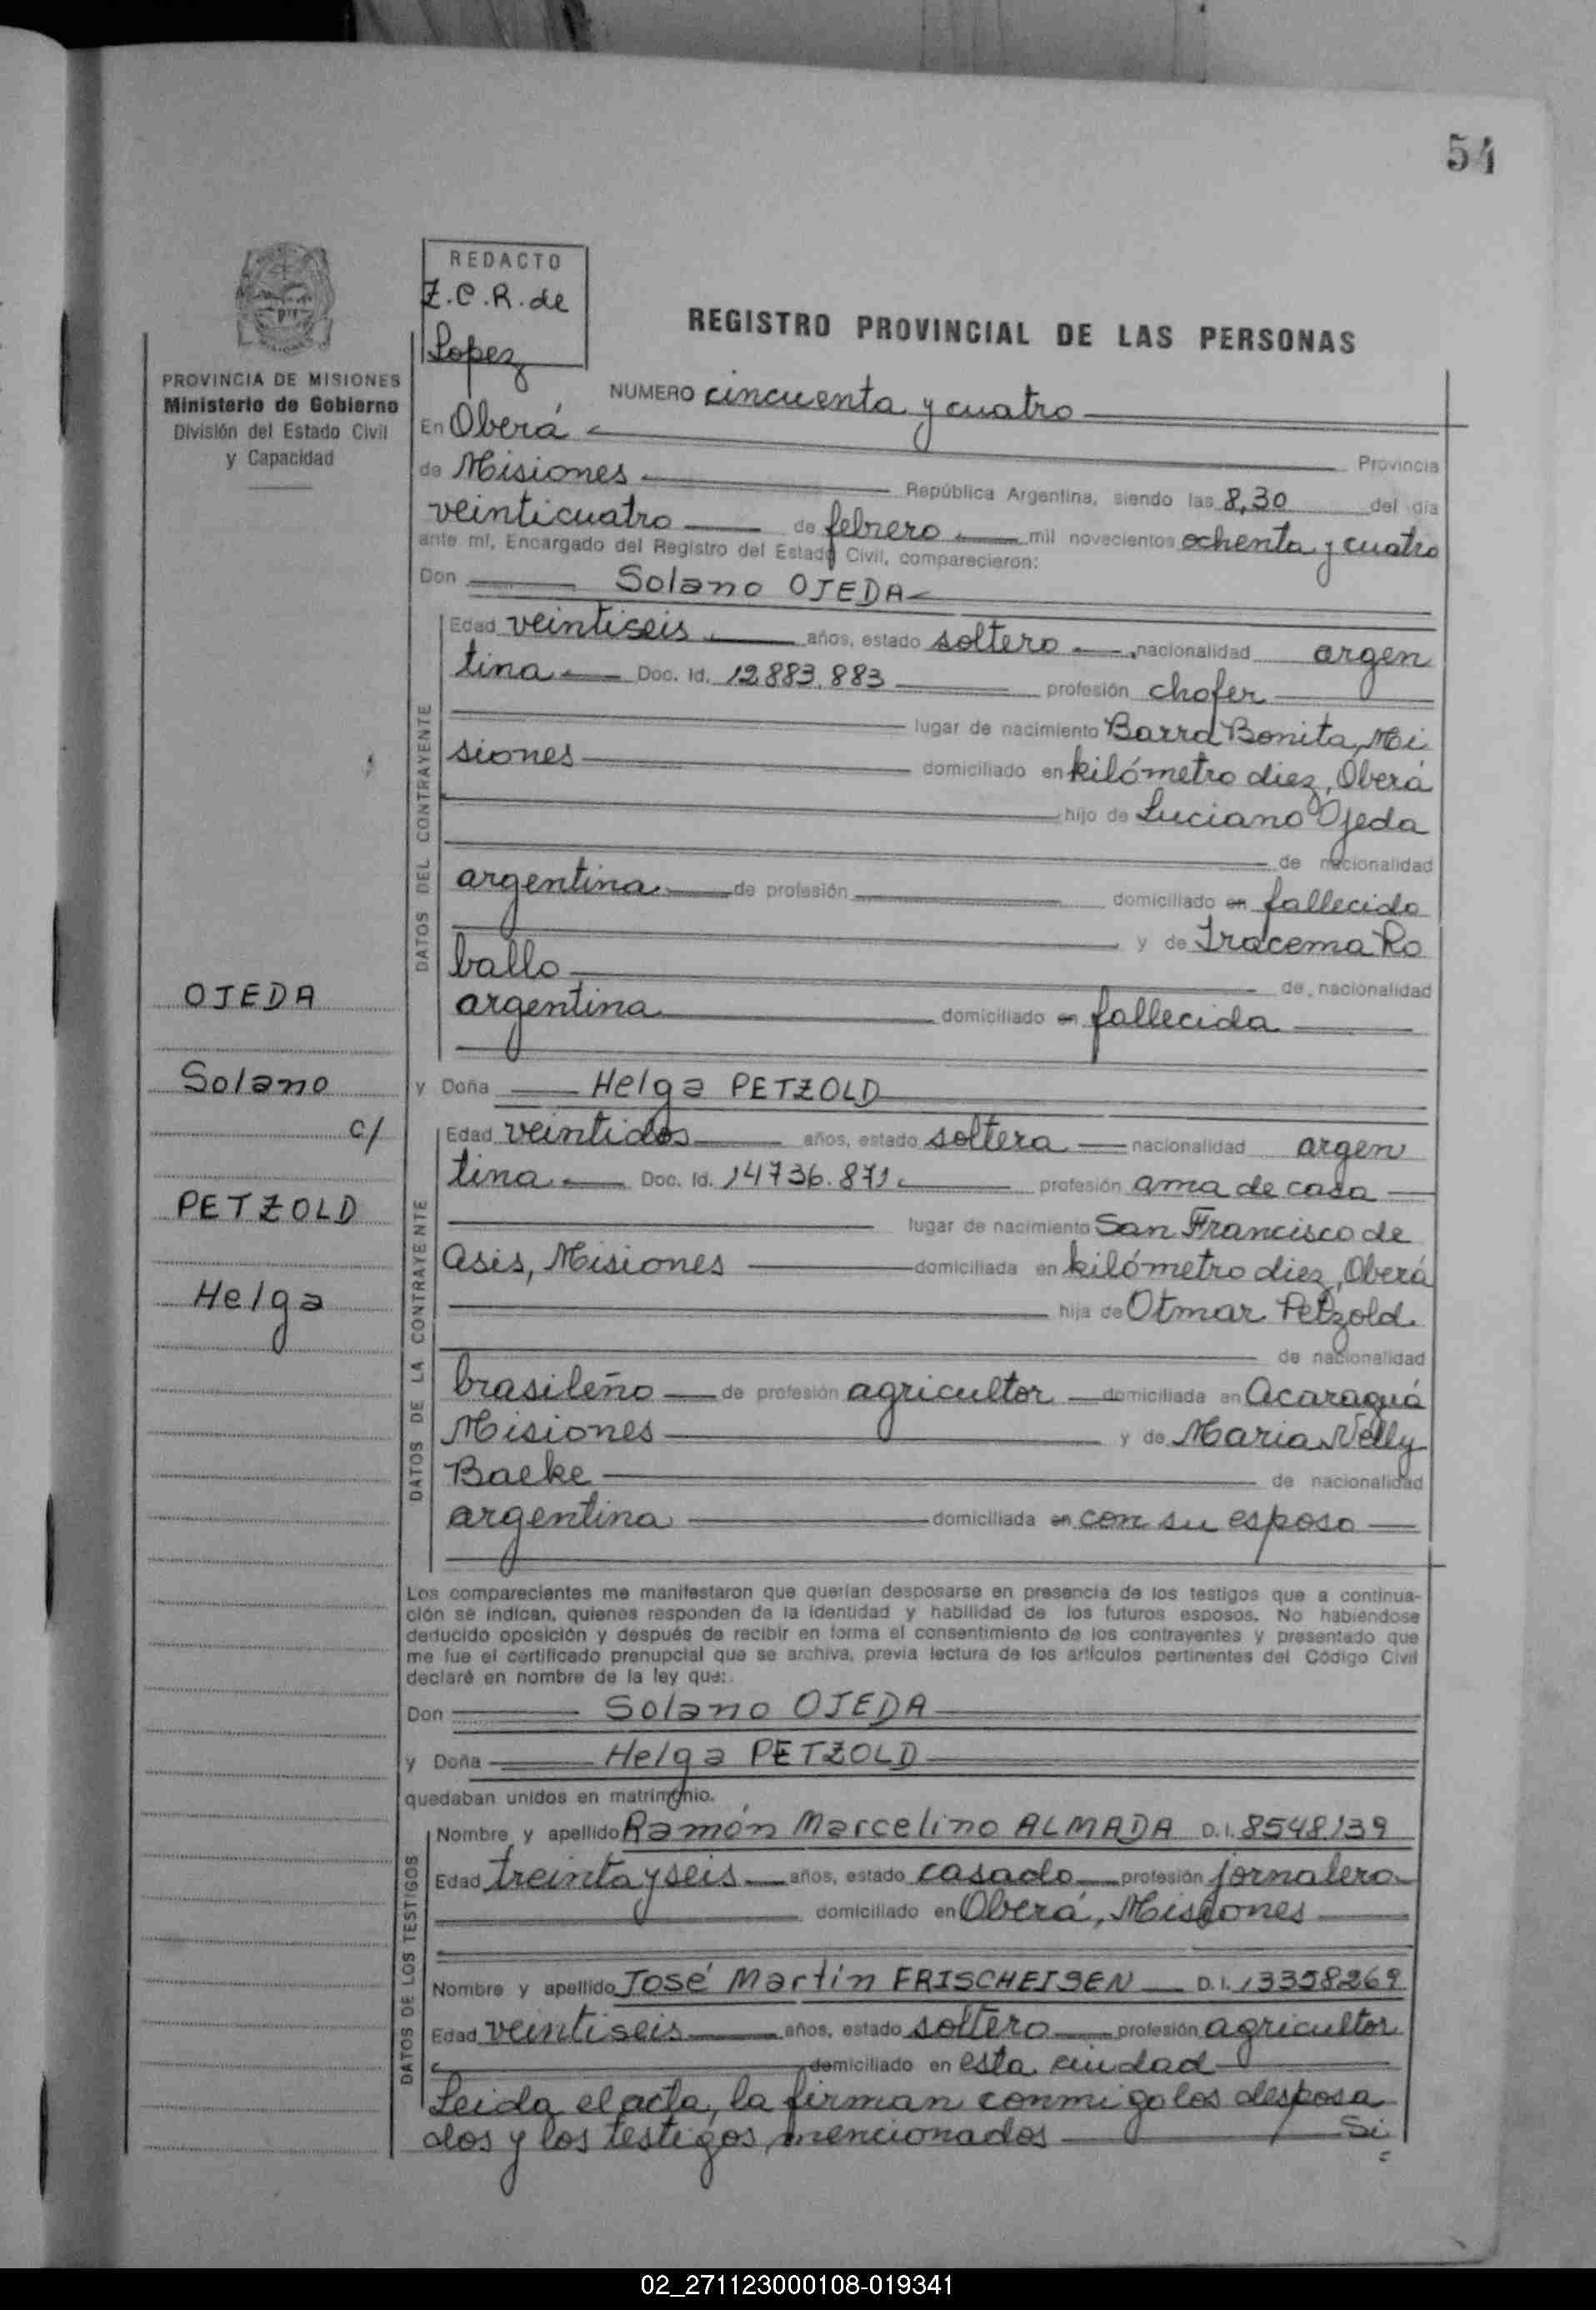 54
REDACTO
Z.C.R. de
Lopez
REGISTRO PROVINCIAL DE LAS PERSONAS
PROVINCIA DE MISIONES
Ministerio de Gobierno
División del Estado Civil
y Capacidad
NUMERO cincuenta y cuatro
En Oberá Provincia
de Misiones República Argentina, siendo las 8,30 del día
veinticuatro de febrero mil novecientos ochenta y cuatro
ante mí, Encargado del Registro del Estado Civil, comparecieron:
Don Solano OJEDA
DATOS DEL CONTRAYENTE
Edad veintiseis años, estado soltero nacionalidad argen
tina Doc. Id. 12.883.883 profesión chofer
lugar de nacimiento Barra Bonita, Mi
siones domiciliado en kilómetro diez, Oberá
hijo de Luciano Ojeda
de nacionalidad
argentina de profesión domiciliado en fallecido
y de Iracema Ro
ballo de nacionalidad
argentina domiciliado en fallecida
OJEDA
Solano
c/
PETZOLD
Helga
y Doña Helga PETZOLD
DATOS DE LA CONTRAYENTE
Edad veintidos años, estado soltera nacionalidad argen
tina Doc. Id. 14736.871 profesión ama de casa
lugar de nacimiento San Francisco de
Asis, Misiones domiciliada en kilómetro diez, Oberá
hija de Otmar Petzold
de nacionalidad
brasileño de profesión agricultor domiciliada en Acaraguá
Misiones y de Maria Nelly
Baeke de nacionalidad
argentina domiciliada en con su esposo
Los comparecientes me manifestaron que querían desposarse en presencia de los testigos que a continua-
ción se indican, quienes responden de la identidad y habilidad de los futuros esposos. No habiéndose
deducido oposición y después de recibir en forma el consentimiento de los contrayentes y presentado que
me fue el certificado prenupcial que se archiva, previa lectura de los artículos pertinentes del Código Civil
declaré en nombre de la ley que:
Don Solano OJEDA
y Doña Helga PETZOLD
quedaban unidos en matrimonio.
DATOS DE LOS TESTIGOS
Nombre y apellido Ramón Marcelino ALMADA D.I. 8548139
Edad treinta y seis años, estado casado profesión jornalero
domiciliado en Oberá, Misiones
Nombre y apellido José Martin FRISCHEISEN D.I. 13358269
Edad veintiseis años, estado soltero profesión agricultor
domiciliado en esta ciudad
Leida el acta, la firman conmigo los desposa
dos y los testigos mencionados Si
02_271123000108-019341